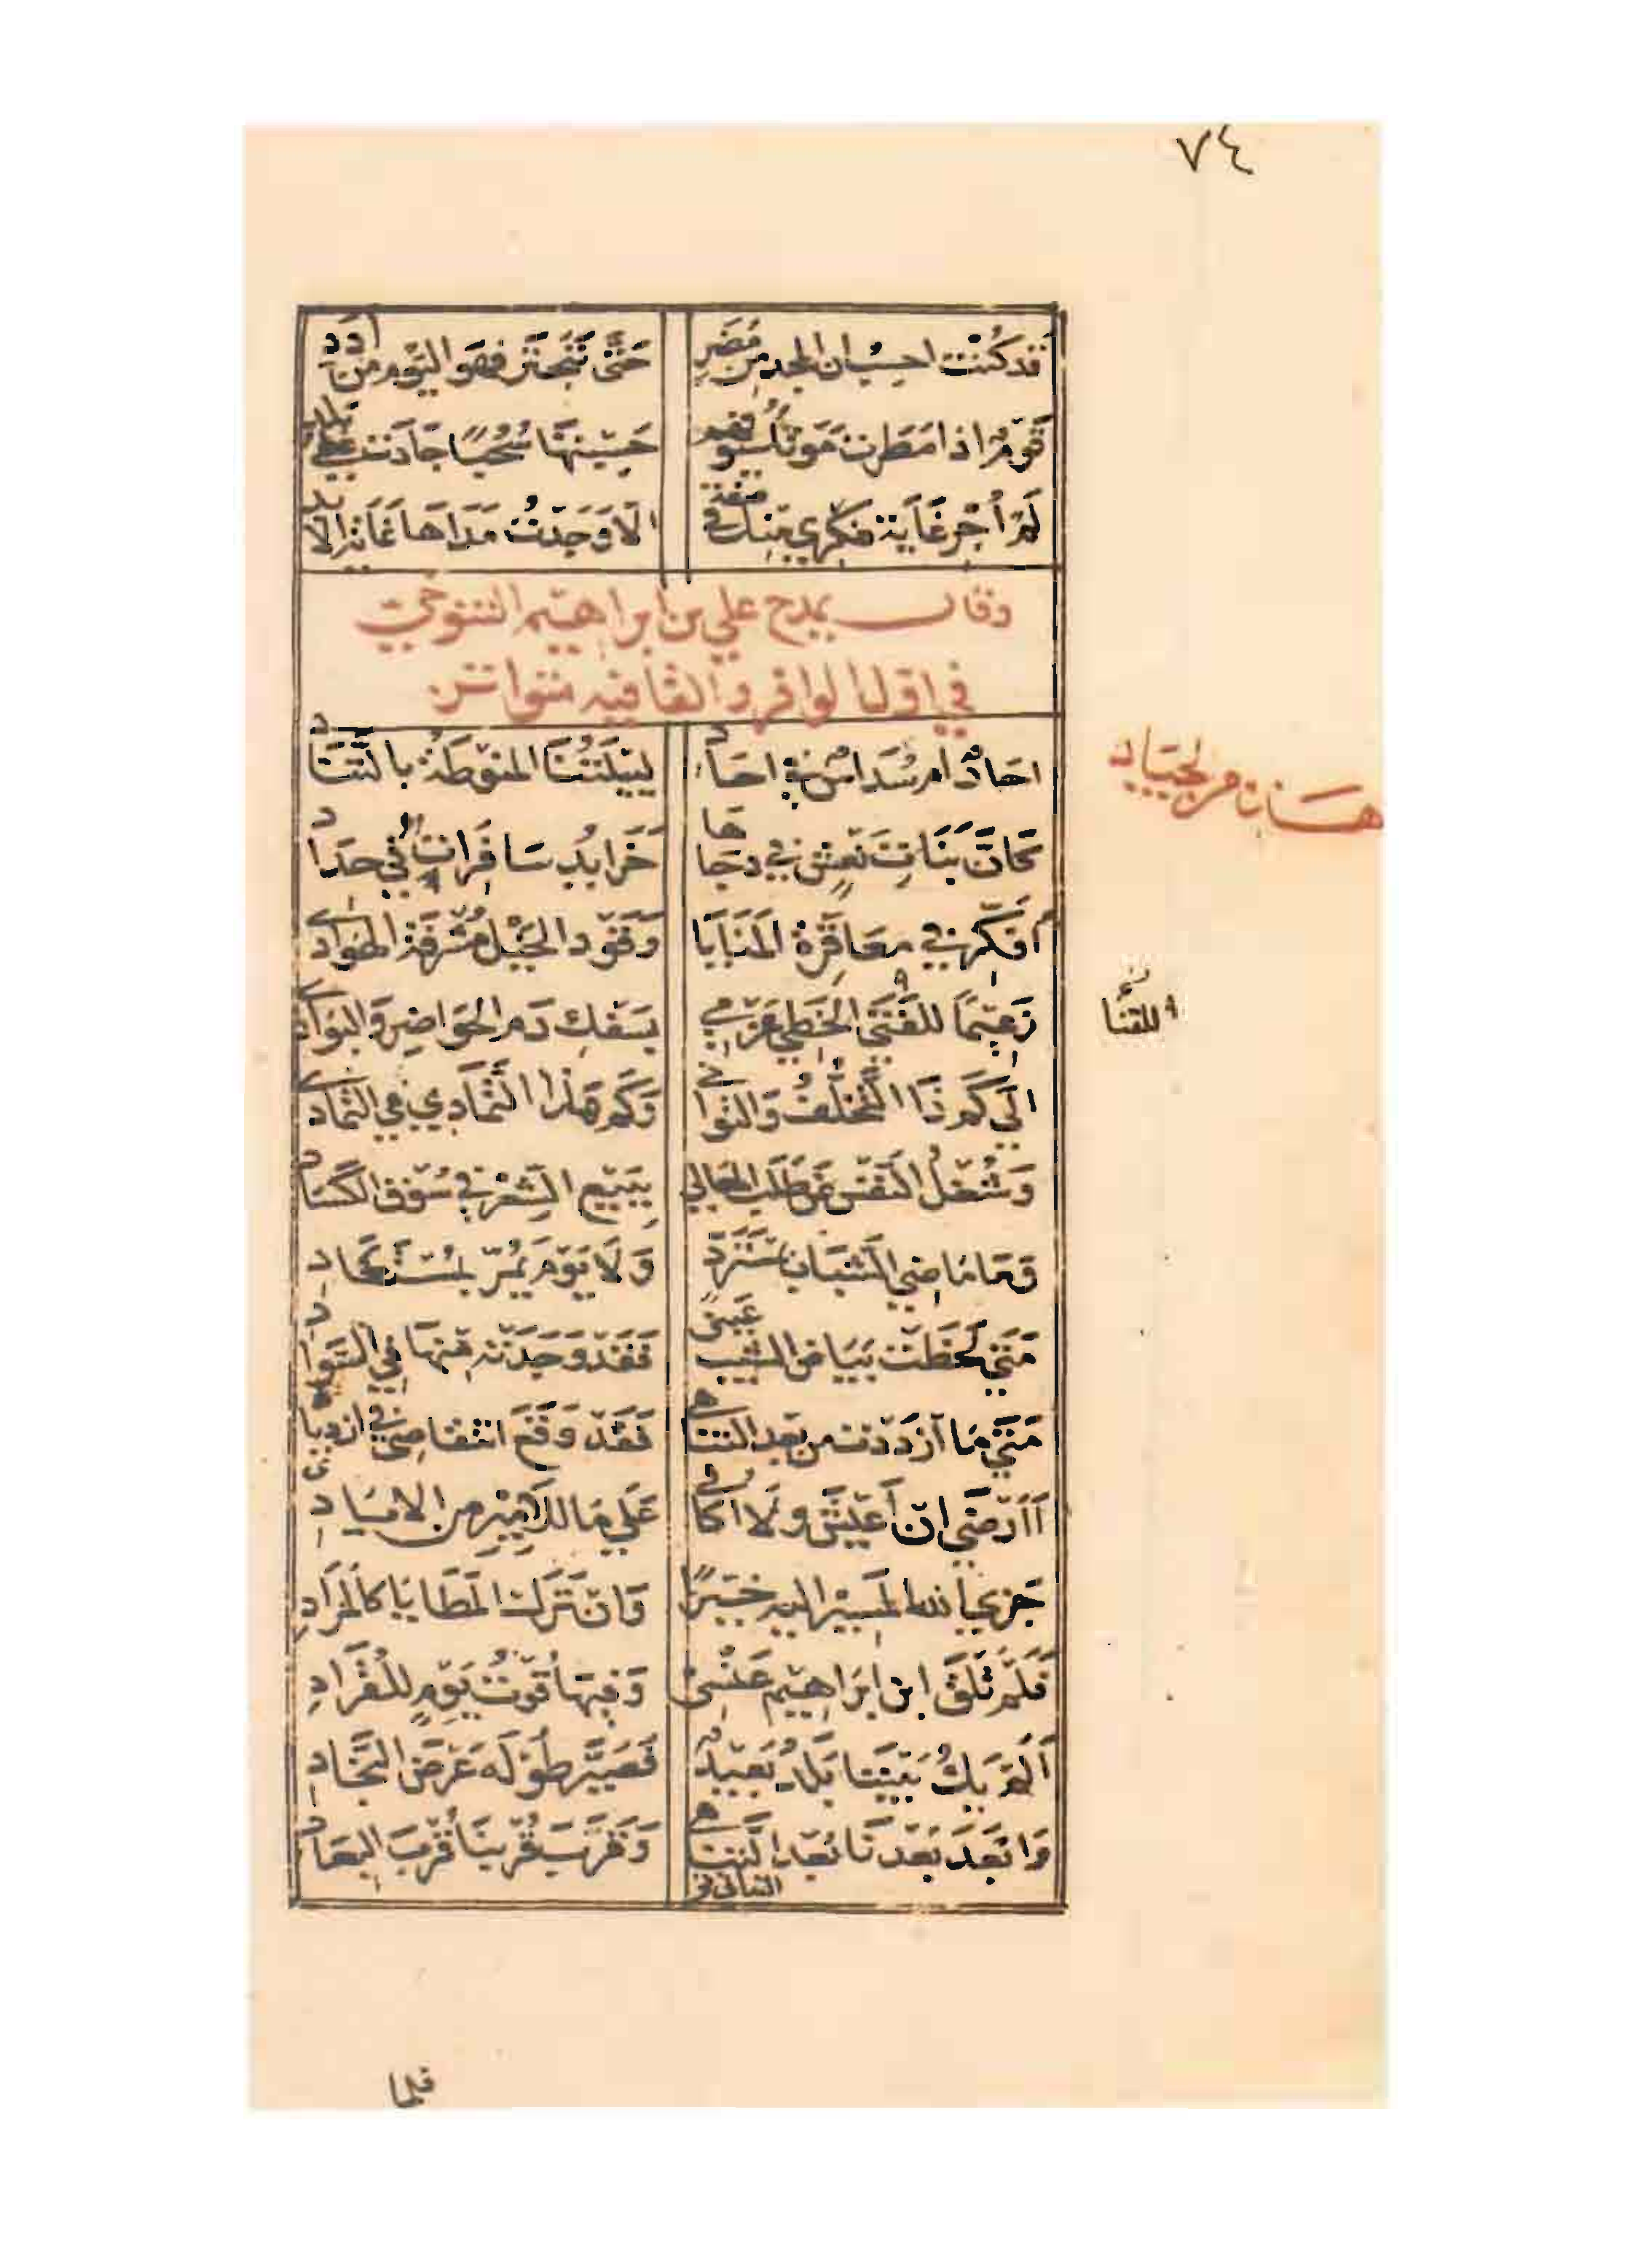 ٧٤
قَد كُنْتُ احسِبُ ان المجد من مُضَرٍ حَتَّى تَبَحتَر فَهوَ اليَوم من اُدَدِ
قَومٌ اذا مَطَرت مَوتًا سُيُوفهم حَسِبتَهَا سُحُبًا جَادَت عَلى بَلَدِ
لَم اُجرِ غَايَة فكري مِنكَ في صفةٍ الا وَجَدتُ مَدَاهَا غَايَة الابد
وقال يمدح علي بن ابراهيم التنوخي
في اول الوافر والقافيه متواتر
احَادٌ ام سُدَاسٌ في احَادِ لِيَيلَتُنَا المنوطَةُ بالتَّنَاد
هسان من الجياد
كَانَّ بَنَاتِ نَعشٍ في دجَاهَا خَرَايدُ سَافَراتٌ في حدَاد
اُفَكِّر في معَاقَرة المَنَايَا وَقَود الخَيل مُشرِفَة الهَوَادي
زَعِيمًا للفَتَى الخَطي عَزمي بِسَفك دَم الحَوَاضِر وَالبَوَادي
للقنا
الي كَم ذَا التَّخلُّفُ وَالتوَاني وَكَم هَذا التَّمَادِي في التمَادي
وَشُغلُ النَّفس عَن طَلَب المَعَالي بِبَيع الشعر في سُوق الكَسَاد
وَمَا مَاضِي الشَّبَاب بمُستَرَدٍّ وَلَا يَوم يَمُرّ بمُستَعَادِ
مَتَي لَحَظَت بَيَاض الشيب عَيني فَقَد وَجَدَته مِنهَا في السَّوَاد
مَتَي مَا ازدَدت من بَعد التناهي فَقَد وَقَع انتقاصي في ازديادي
اَاَرضَي ان اَعِيشَ وَلَا اكَافي عَلي مَا للاَمِيرِ من الايَادِي
جَزي الله المَسير اليه خَيرًا وَان تَرَك المَطَايَا كَالمَزَادِ
فَلَم تَلقَ ابن ابرَاهِيم عَنسِي وَفيهَا قُوتُ يَومٍ لِلقُرَادِ
اَلَم يَكُ بَينَنَا بَلَدٌ بَعِيدٌ فَصَيَّر طُولَه عَرضَ النّجَادِ
وَابعَدَ بُعدَنَا بُعدَ التناهي وَقَرَّبَ قُربَنَا قُربَ البعَاد
التداني
فلما